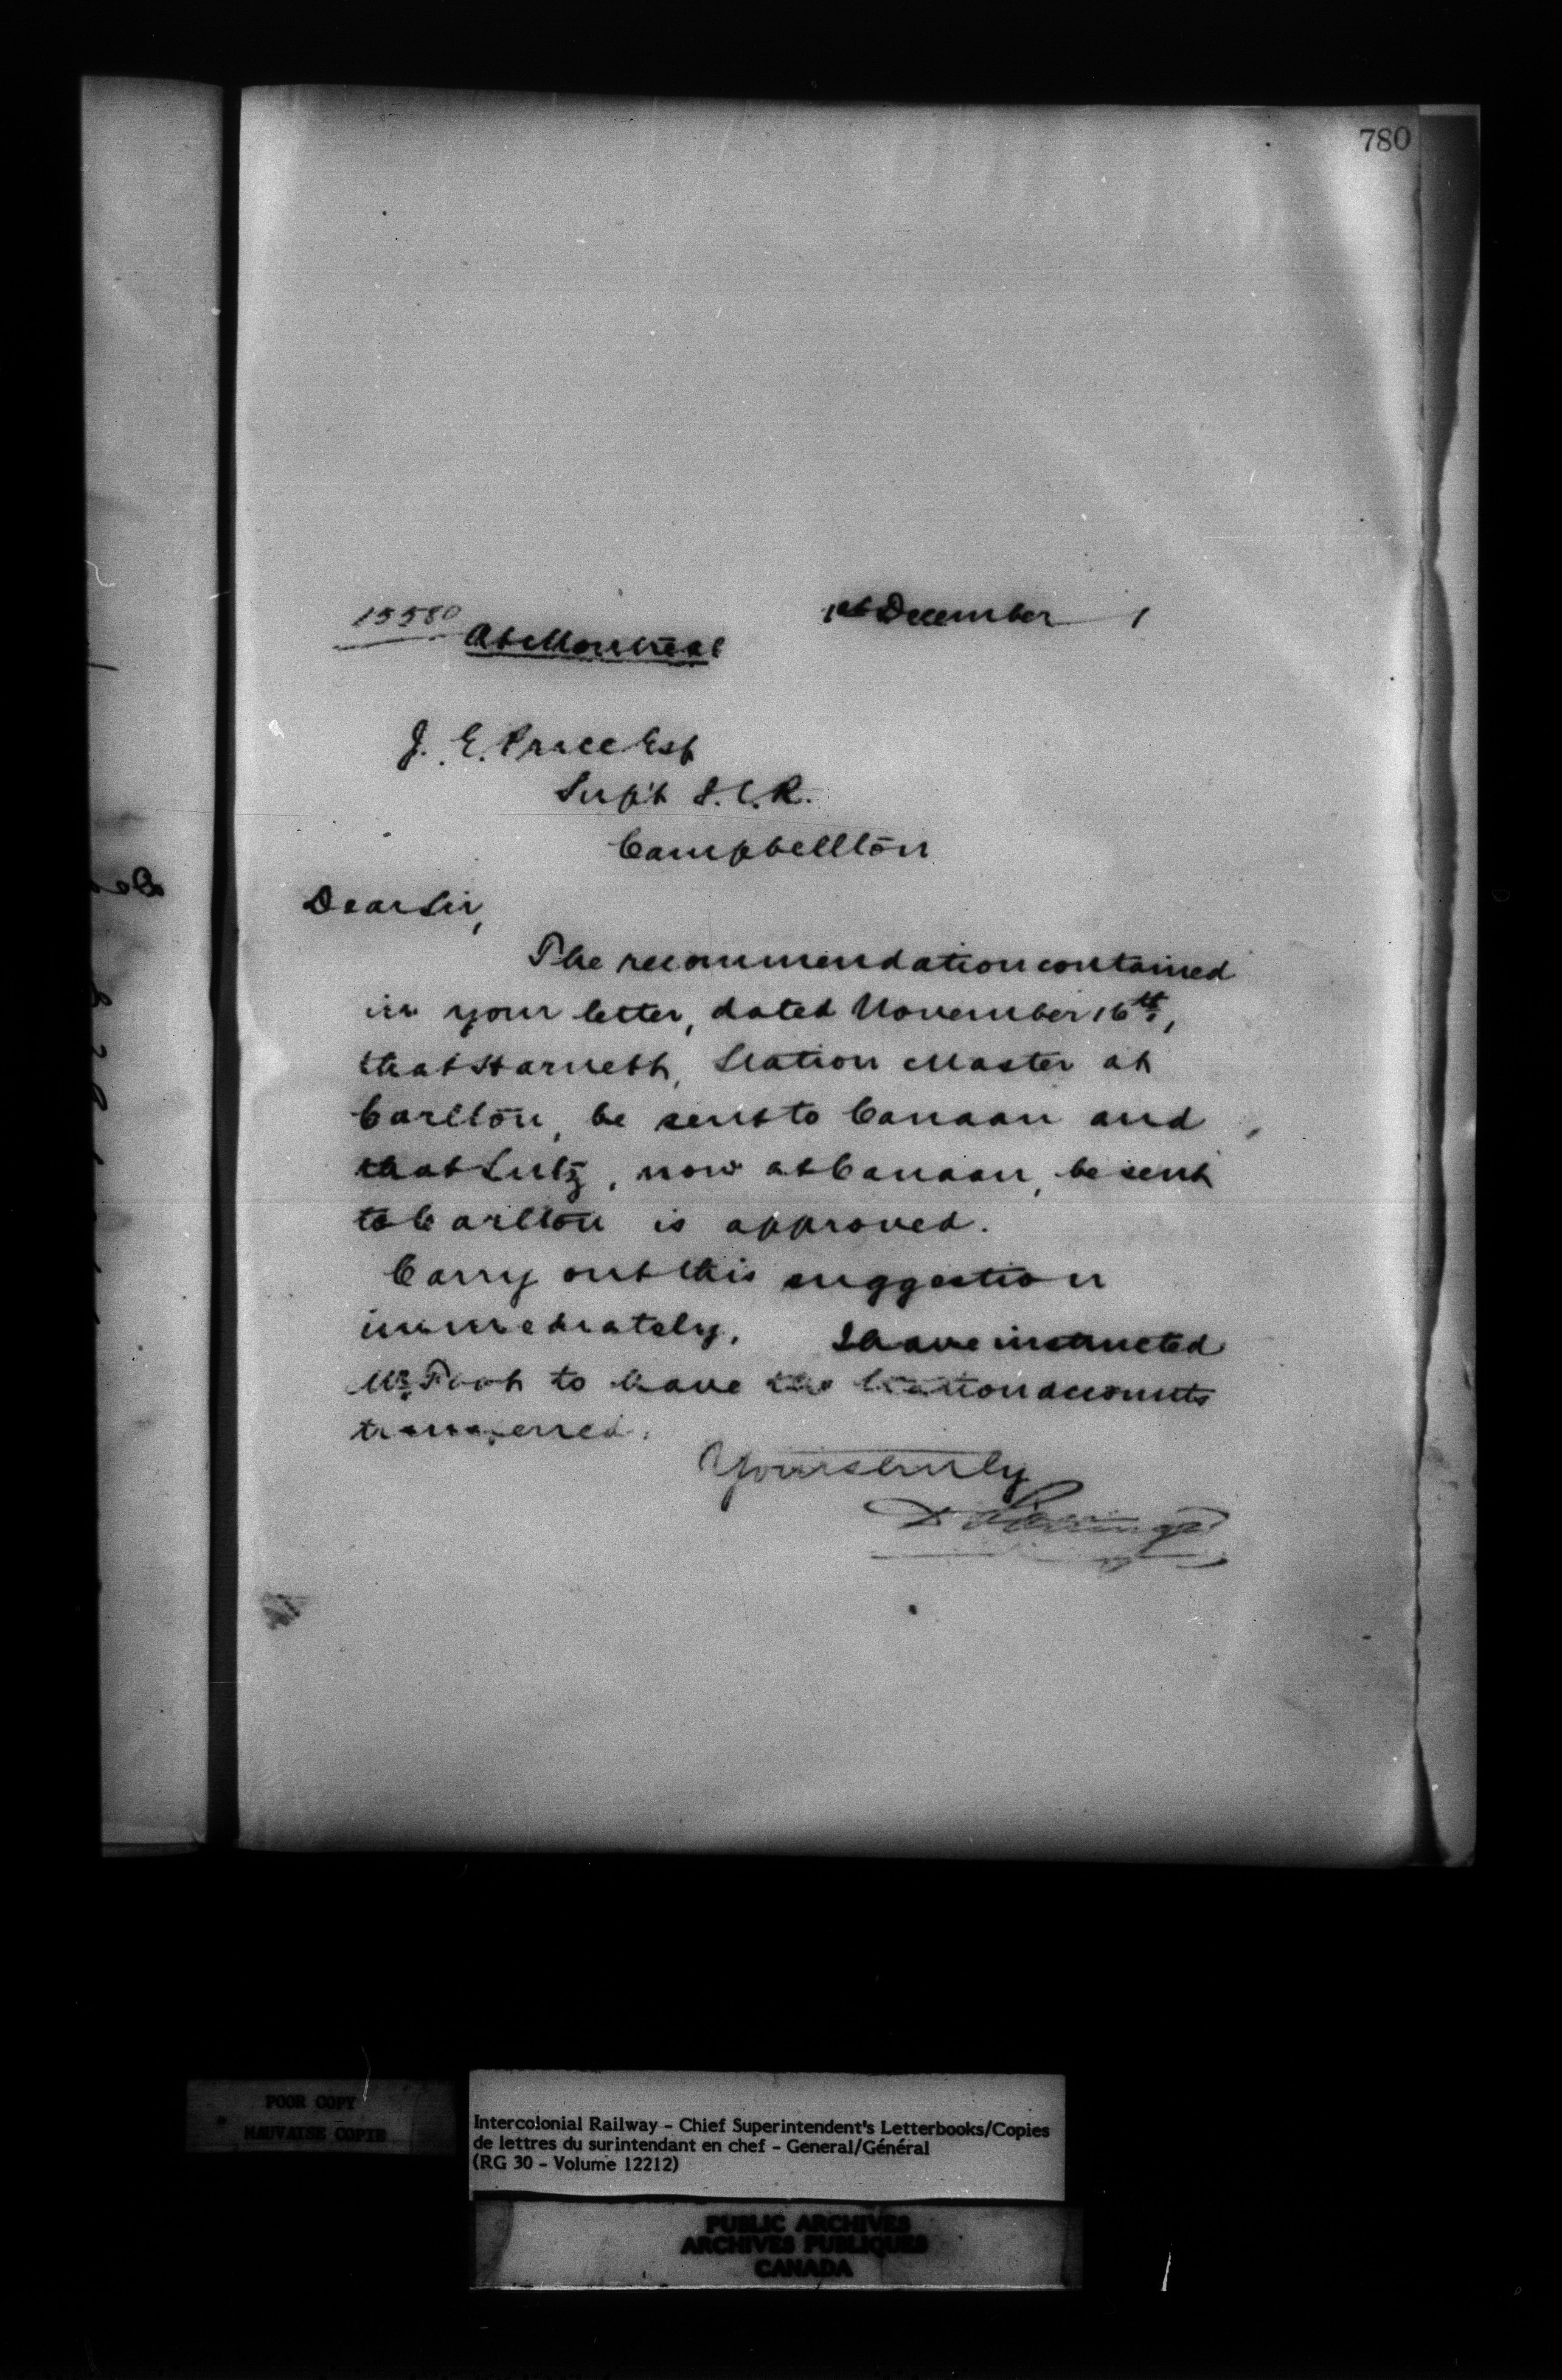 780
15580
At Montreal
1st December 1
J. E. Price Esq
Sup't I.C.R.
Campbellton
Dear Sir,
The recommendation contained
in your letter, dated November 16th,
that Harnett, Station Master at
Carlton, be sent to Canaan and
that Lutz, now at Canaan, be sent
to Carlton is approved.
Carry out this suggestion
immediately. I have instructed
Mr. Foot to have the Station accounts
transferred.
Yours truly
D Pottinger
POOR COPY
MAUVAISE COPIE
Intercolonial Railway - Chief Superintendent's Letterbooks/Copies
de lettres du surintendant en chef - General/Général
(RG 30 - Volume 12212)
PUBLIC ARCHIVES
ARCHIVES PUBLIQUES
CANADA